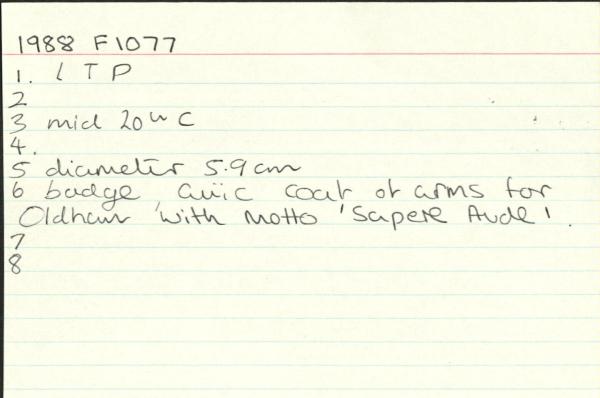 1988 F1077
1. LTP
2
3 mid 20th C
4.
5 diameter 5.9cm
6 badge, civic coat of arms for
Oldham with motto 'Sapere Aude'.
7
8